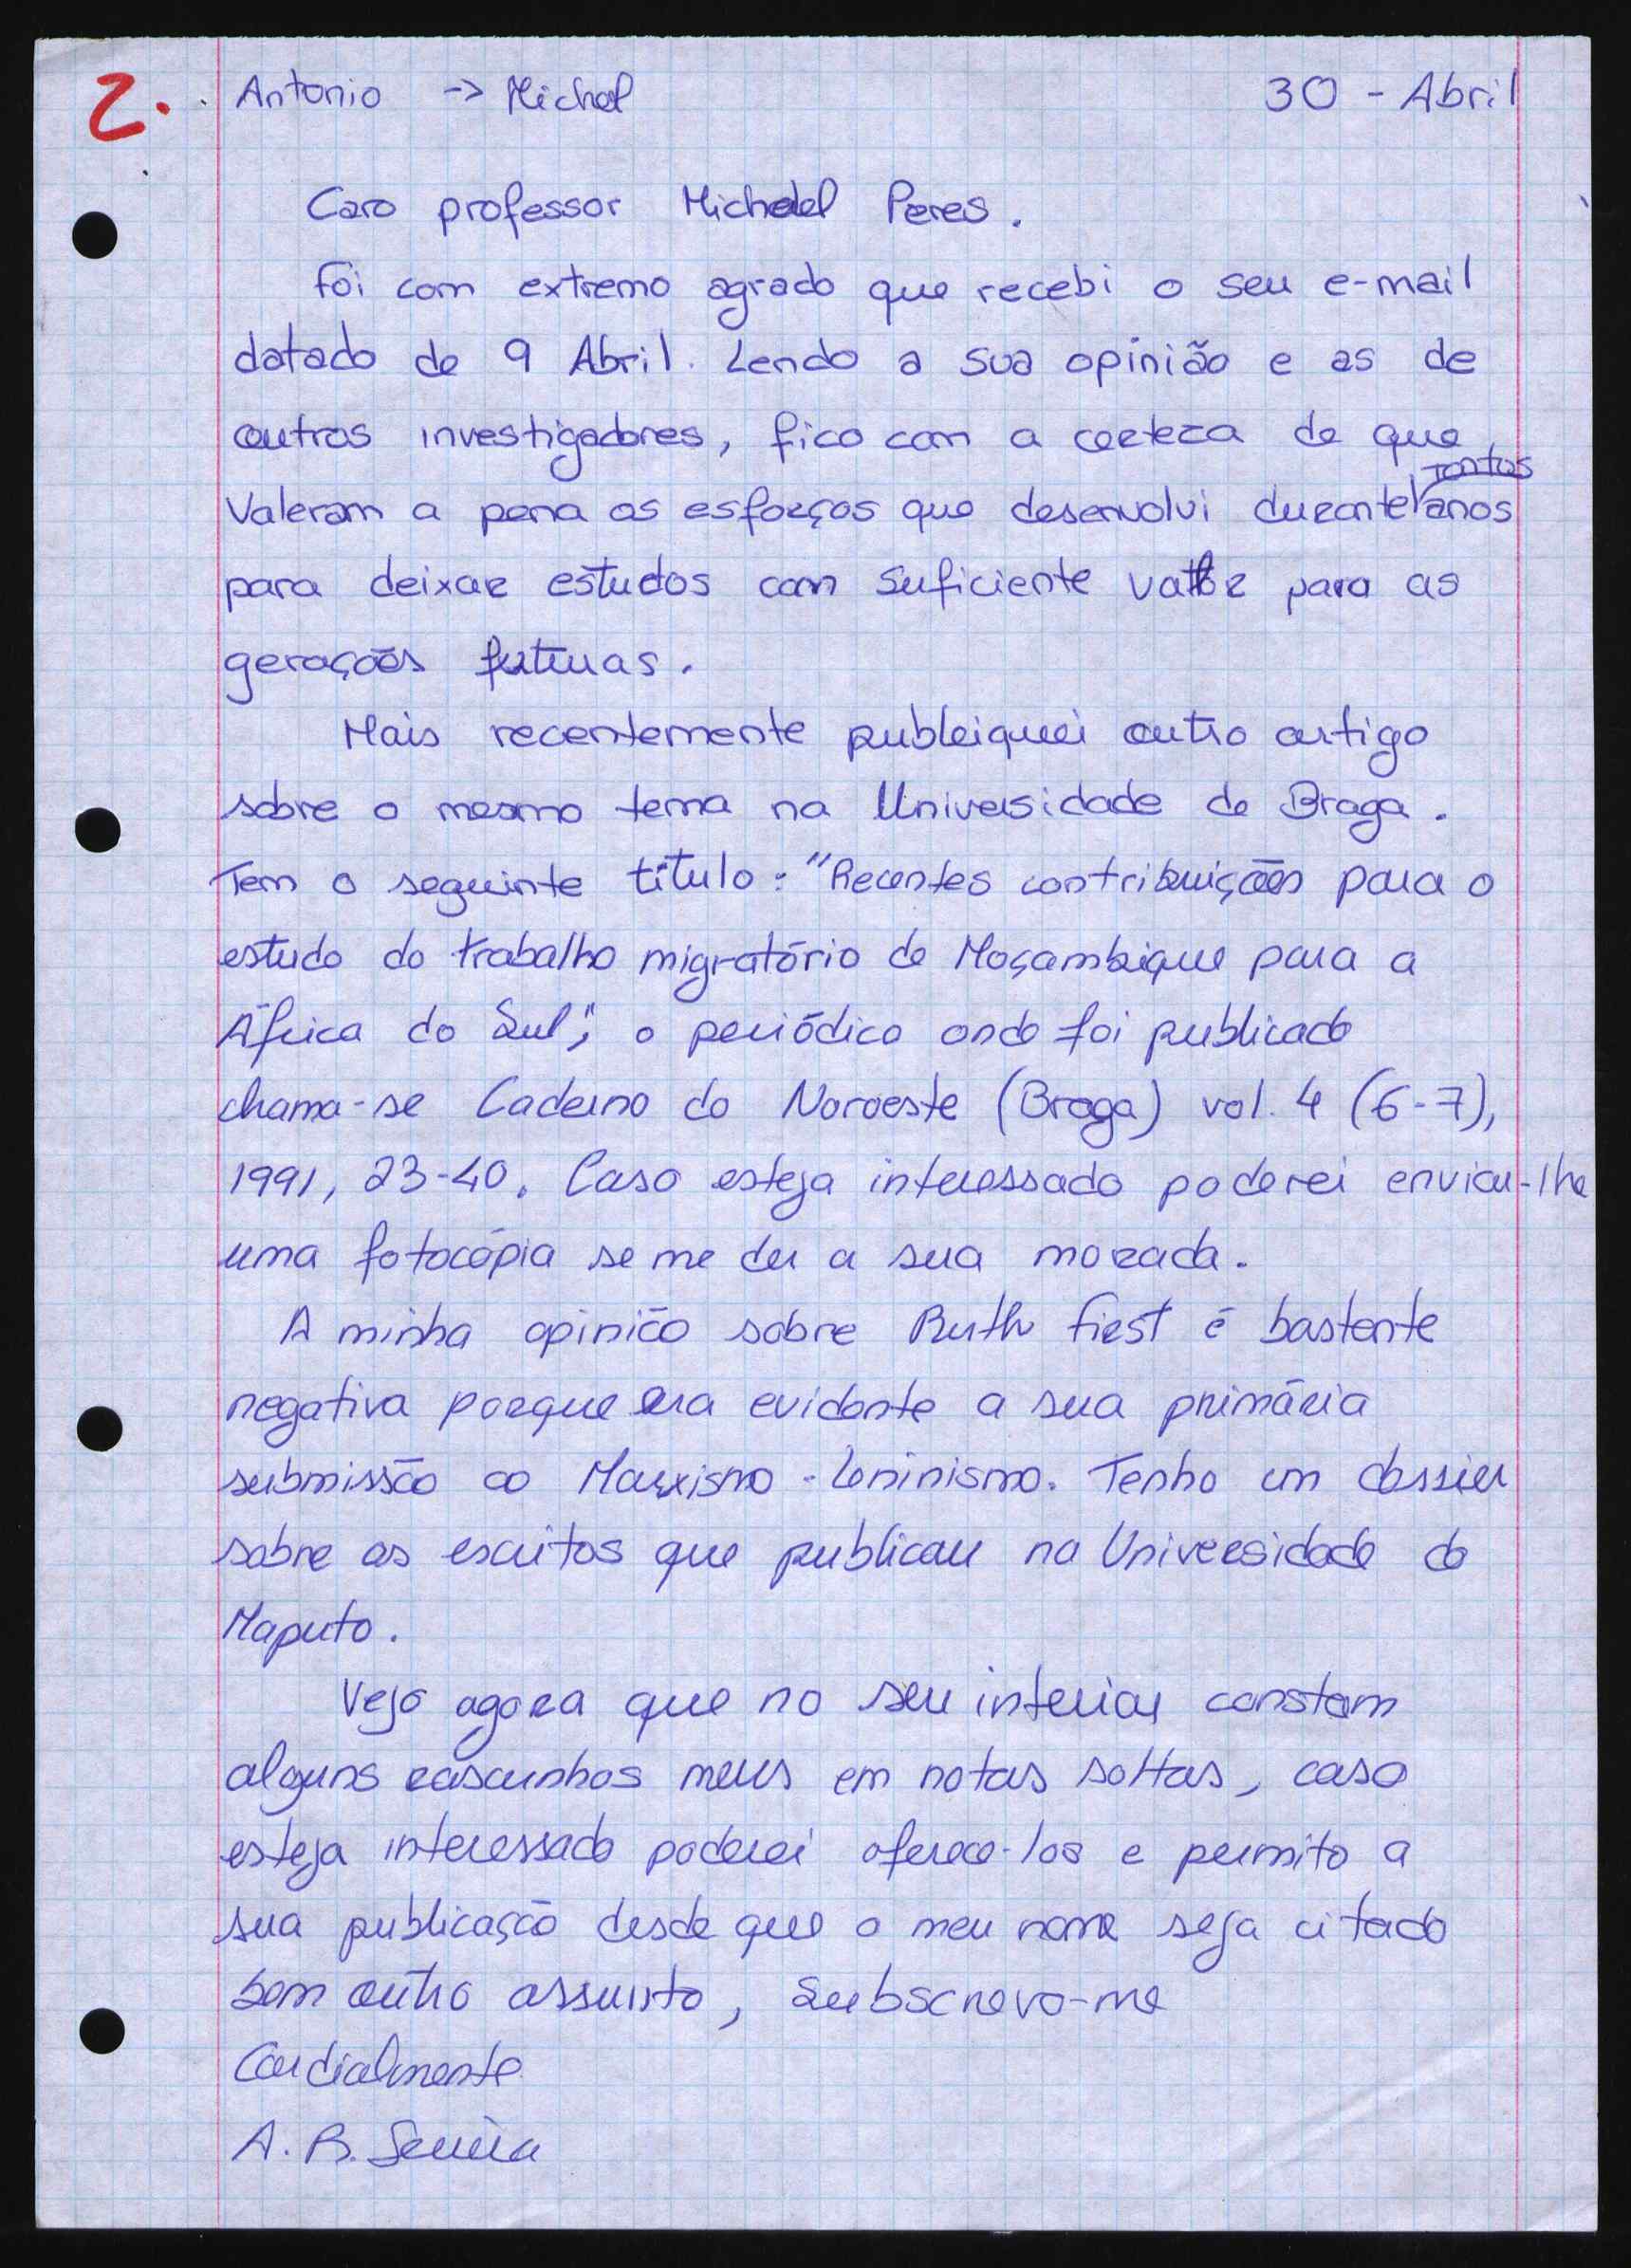 2. Antonio -> Michel 30 - Abril
Caro professor Michael Peres.
Foi com extremo agrado que recebi o seu e-mail
datado de 9 Abril. Lendo a sua opinião e as de
outros investigadores, fico com a certeza de que
tantos
valeram a pena os esforços que desenvolvi durante anos
para deixar estudos com suficiente valor para as
gerações futuras.
Mais recentemente publeiquei outro artigo
sobre o mesmo tema na Universidade de Braga.
Tem o seguinte título: "Recentes contribuições para o
estudo do trabalho migratório de Moçambique para a
África do Sul"; o periódico onde foi publicado
chama-se Caderno do Noroeste (Braga) vol. 4 (6-7),
1991, 23-40. Caso esteja interessado poderei enviar-lhe
uma fotocópia se me der a sua morada.
A minha opinião sobre Ruth First é bastente
negativa porque era evidente a sua primária
submissão ao Marxismo-Leninismo. Tenho um dossier
sobre os escritos que publicou na Universidade do
Maputo.
Vejo agora que no seu interior constam
alguns rascunhos meus em notas soltas, caso
esteja interessado poderei oferece-los e permito a
sua publicação desde que o meu nome seja citado
Sem outro assunto, Subscrevo-me
Cordialmente
A. R. Sems